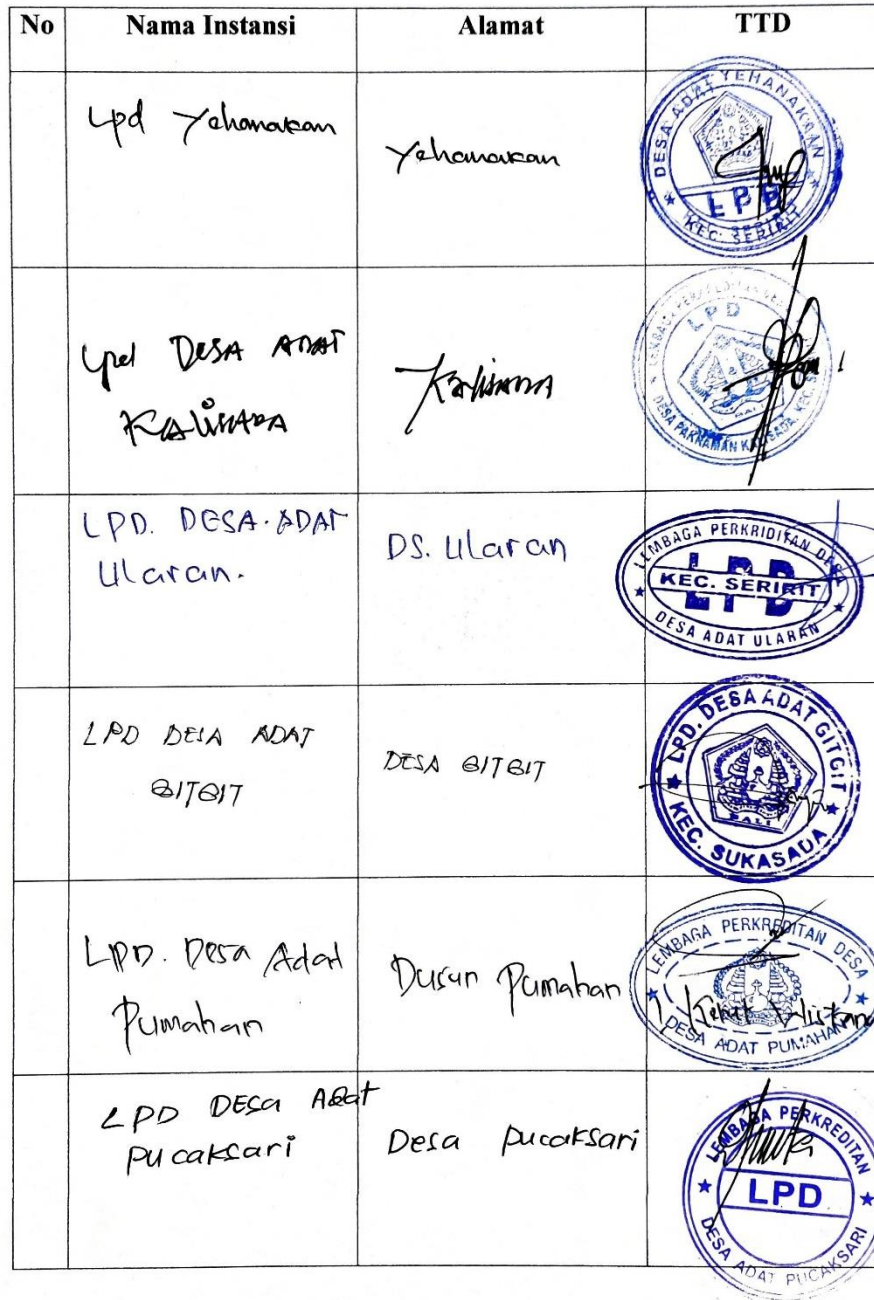 No Nama Instansi Alamat TTD
Lpd Yehanakan
Yehanakan
DESA ADAT YEHANAKAN
LPD
KEC. SERIRIT
Lpd DESA ADAT
KALISADA
Kalisada
LPD
BALI
DESA PAKRAMAN KALISADA, KEC.
LPD. DESA. ADAT
Ularan.
DS. Ularan
LEMBAGA PERKRIDITAN DESA
LPD
KEC. SERIRIT
DESA ADAT ULARAN
LPD DESA ADAT
GITGIT
DESA GITGIT
LPD. DESA ADAT GITGIT
BALI
KEC. SUKASADA
LPD. Desa Adat
Pumahan
Dusun Pumahan
LEMBAGA PERKREDITAN DESA
Ketut
DESA ADAT PUMAHAN
LPD DESA Adat
Pucaksari
Desa Pucaksari
LEMBAGA PERKREDITAN
LPD
DESA ADAT PUCAKSARI